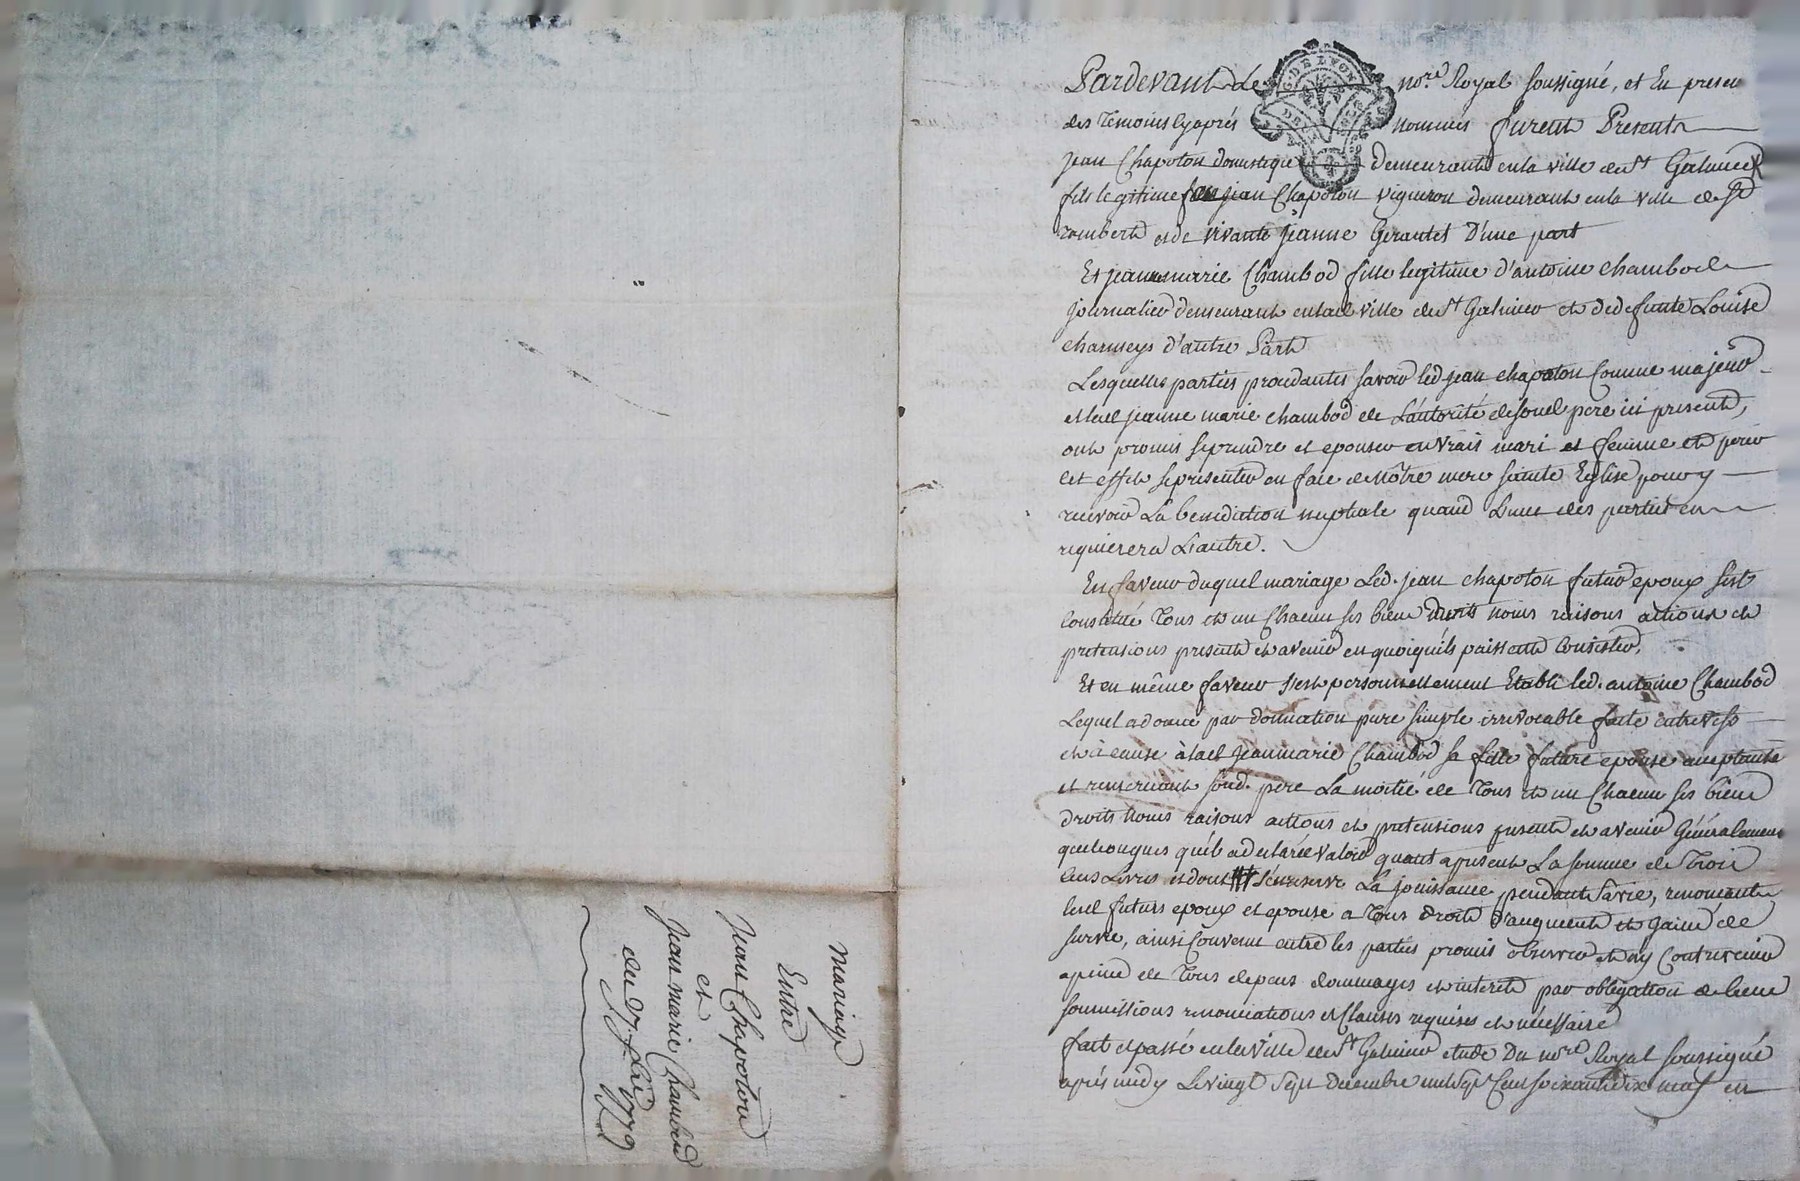 Mariage
Entre
Jean Chapoton
et
Jean marie Chambod
du 27. 1779
Pardevant Le no.re Royal soussigné, et En presen
des temoins cyaprés nommés furent Presents
G. DE LYON
DEUX
jean Chapoton domestique demeurant en la ville de St Galmier
fils legitime jean Chapoton vigneron demeurant en la ville de St
rambert et de vivante jeanne Gerantet D'une part
Et jeanne marie Chambod fille legitime d'antoine chambod
journalier demeurant en lad ville de St Galmier et de defunte Louise
charmeys d'autre Part
Lesquelles parties procedantes savoir led jean chapoton Comme majeur
et lad jeanne marie chambod de L'autorité de soud pere ici present,
ont promis se prendre et epouser en vrais mari et femme et pour
cet effet se presenter en face de Nôtre mere sainte Eglise pour y
recevoir La benediction nuptiale quand L'une des parties en
requierera L'autre.
En faveur duquel mariage Led. jean chapoton futur epoux sest
Constitué Tous et un Chacun ses biens droits noms raisons actions et
pretensions presents et avenir en quoiqu'ils puissent Consister.
Et en même faveur s'est personnellement Etabli led. antoine Chambod
Lequel a donné par donnation pure simple irrevocable faite entre vifs
et à cause à lad jeanmarie Chambod sa fille future epouse acceptante
et remerciant soud. pere La moitié de Tous et un Chacun ses biens
droits noms raisons actions et pretensions presents et avenir Généralement
quelconques qu'il a declarée valoir quant apresent La somme de Trois
Cens Livres et dont il s'en reserve La jouissance pendant sa vie, renonçant
lesd futurs epoux et epouse a Tous droits d'augment et gains de
survie, ainsi Convenu entre les parties promis observer et ny Contrevenir
a peine de Tous depens dommages et interets par obligation de biens
soumissions renonciations et Clauses requises et nécessaire
fait et passé en la ville de St Galmier etude Du no.re Royal soussigné
après midy Le vingt Sept Decembre mil Sept Cent soixante dix neuf en